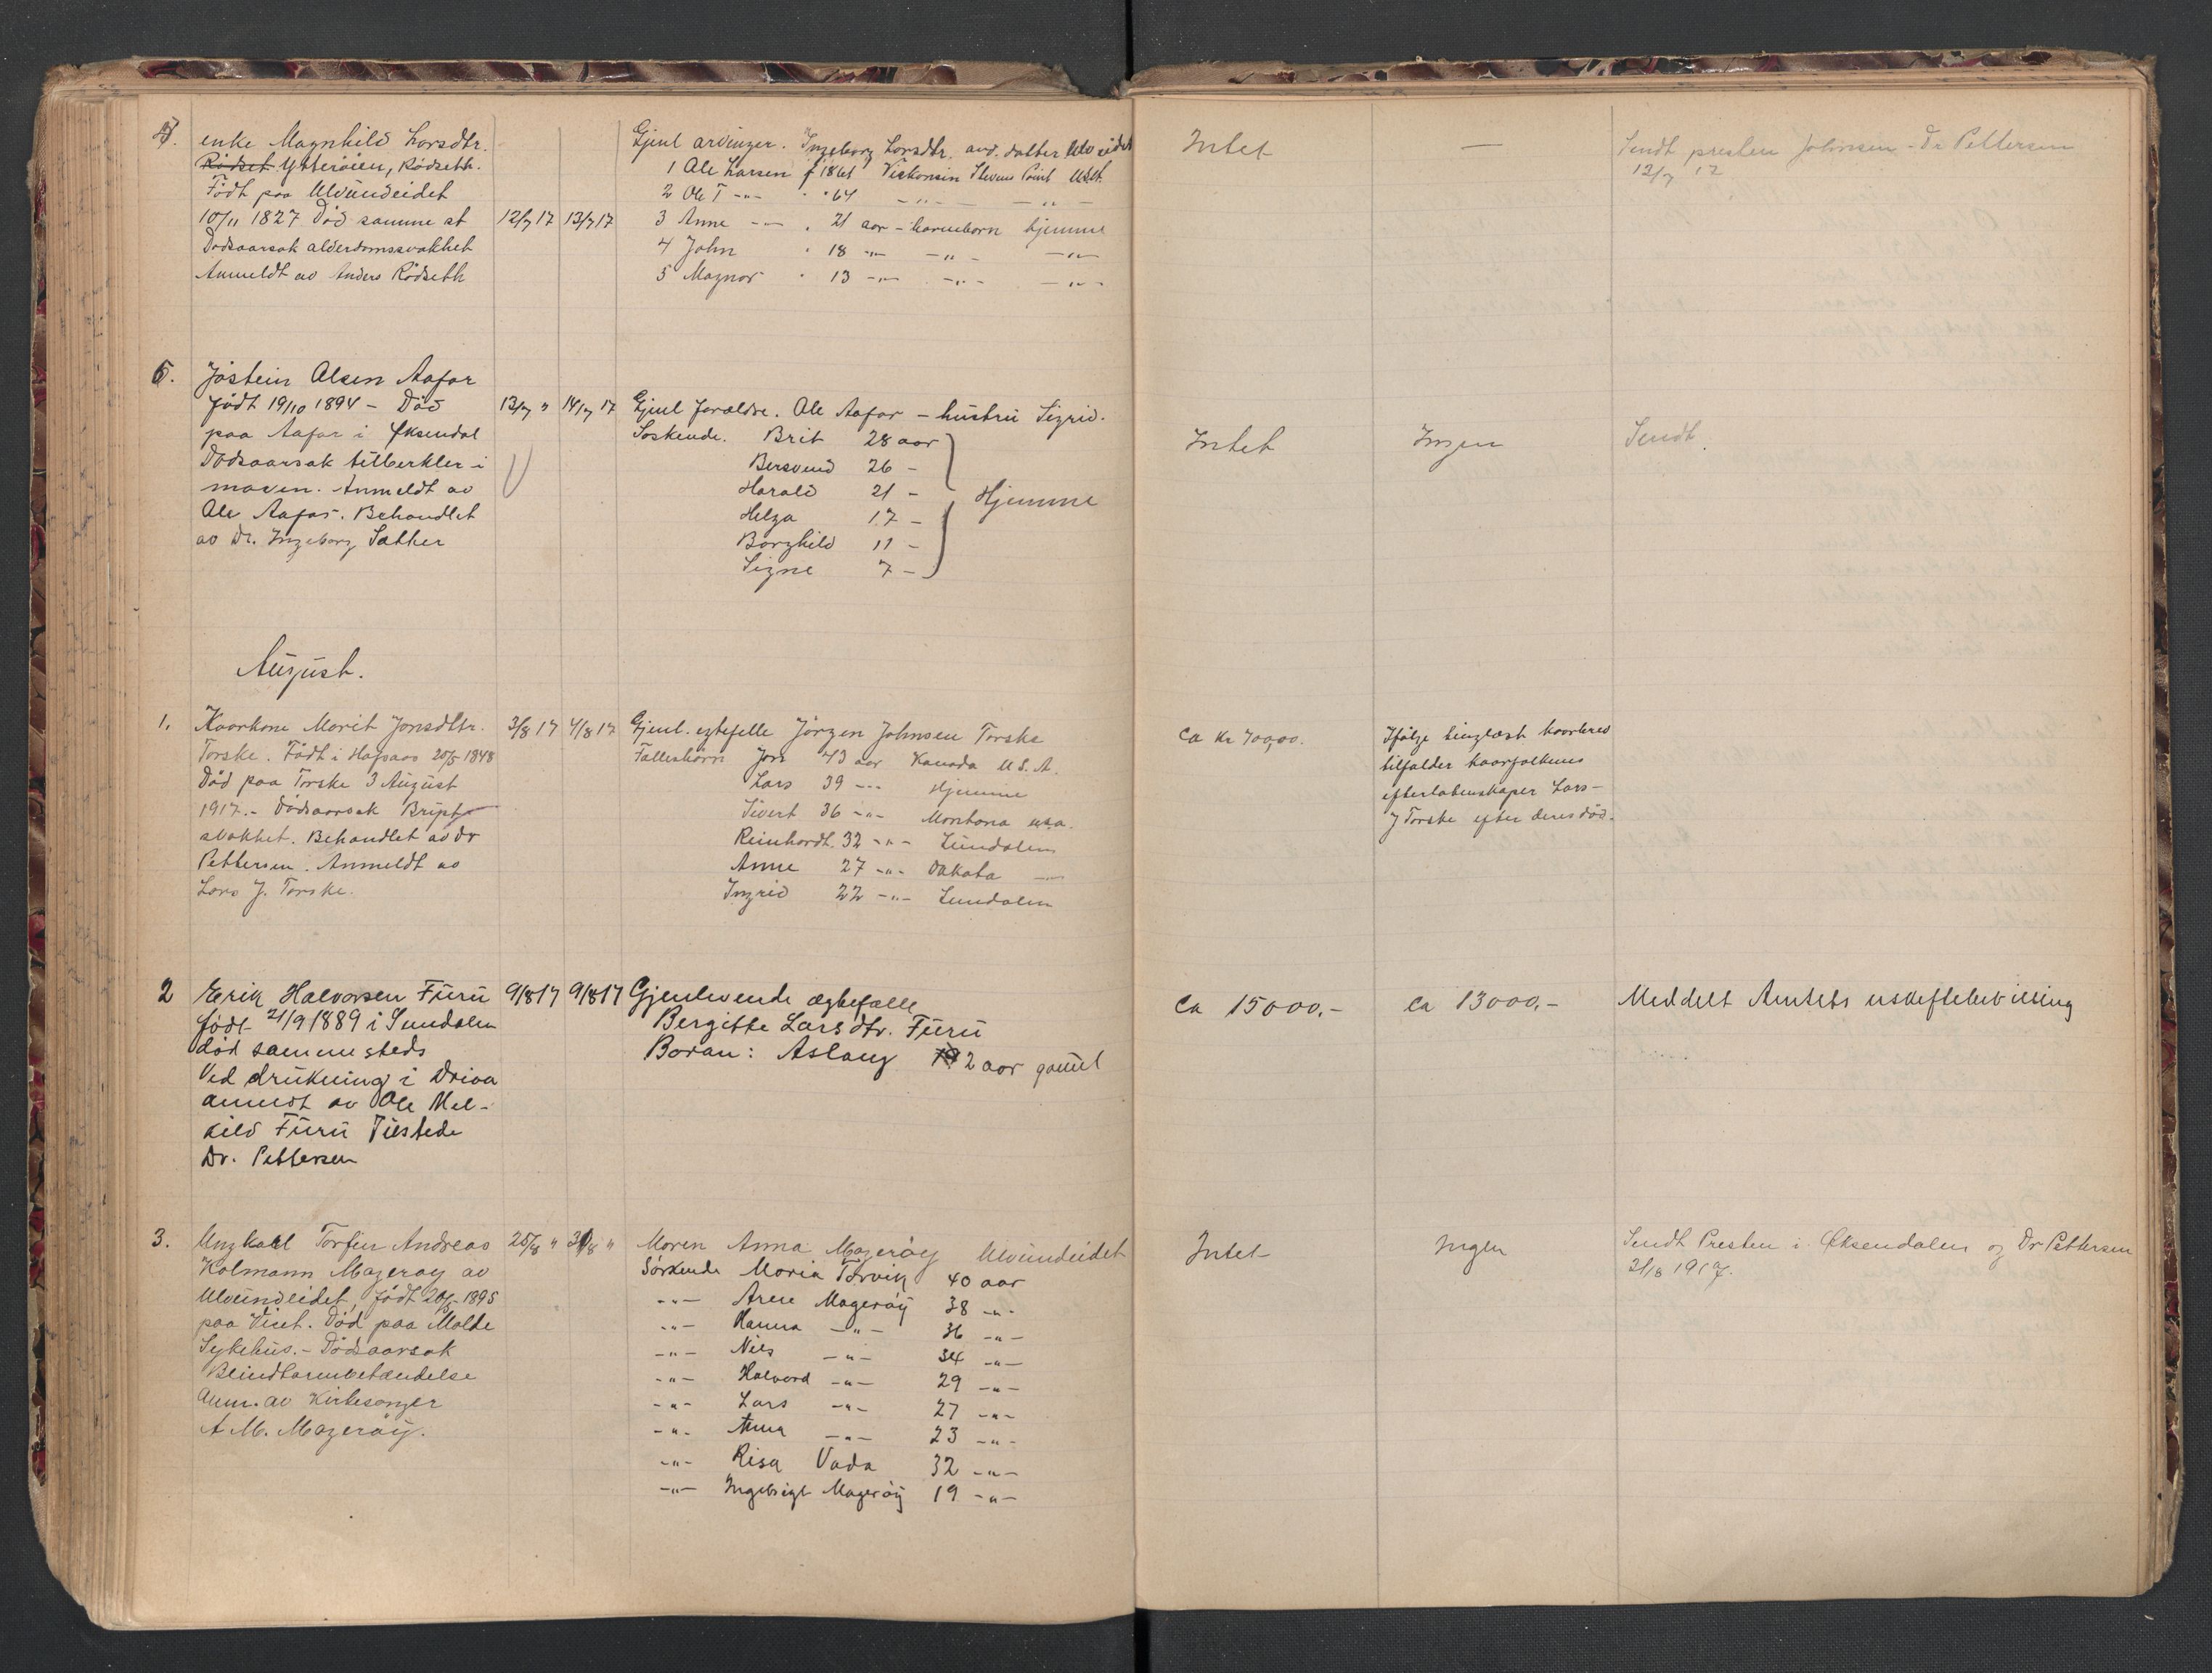 4. enke Magnhild Larsdtr.
Rödset Ytteröien, Rödseth.
Födt paa Ulvundeidet
10/11 1827 Död samme st 12/7 17 13/7 17
Dödsaarsak alderdomssvakhet
Anmeldt av Anders Rödseth
Gjenl arvinger. Ingeborg Larsdtr. and. datter Ulv eidet
1 Ole Larsen f 1861 Viskonsin Stevens Point U.S.A.
2 Ole T -"- " 64 -"- -"-
3 Anne -"- " 21 aar - barnebarn hjemme
4 John " 18 -"- -"- -"-
5 Magnar " 13 -"- -"- -"-
Intet —
Sendt presten Johnsen - Dr Pettersen
12/7 17
5. Jöstein Olsen Aafar
födt 19/10 1894 - Död 13/7 " 14/7 17
paa Aafar i Øksendal
Dödsaarsak tüberkler i
maven. Anmeldt av
Ole Aafar. Behandlet
av Dr. Ingeborg Sather
Gjenl Foraldre. Ole Aafar - hustru Sigrid.
Soskende. Brit 28 aar
Bersvend 26 -
Harald 21 -
Helga 17 -
Borghild 11 -
Signe 7 -
Hjemme
Intet Ingen Sendt.
August.
1. Kaarkone Marit Jonsdtr. 3/8 17 4/8 17
Torske. Födt i Hafsaas 20/5 1848
Död paa Torske 3 August
1917. - Dödsaarsak Bryst
svakhet. Behandlet av dr
Pettersen. Anmeldt av
Lars J. Torske.
Gjenl. egtefelle Jörgen Johnsen Torske
Fallesbarn Jon 43 aar Kanada U.S.A.
Lars 39 -"- Hjemme
Sivert 36 -"- Montana usa.
Reinhardt. 32 -"- Sundalen
Anne 27 -"- Dakota -"-
Ingrid 22 -"- Sundalen
Ca kr 700,00.
Ifölge tinglæst kaarbrev
tilfalder kaarfolkenes
efterladenskaper Lars -
J Torske efter deres död.
2 Erik Halvorsen Furu 9/8 17 9/8 17
födt 21/9 1889 i Sundalen
död sammesteds
Ved drukning i Driva
anmeldt av Ole Mel-
kild Furu Tilstede
Dr. Pettersen
Gjenlevende ægtefælle
Bergitte Larsdtr. Furu
Boran: Aslaug 2 aar gamel
Ca 15000,- Ca 13000,- Meddelt Amtets uskiftebevilling
3. Ungkarl Torfin Andreas 25/8 " 31/8 "
Kolmann Mageröy av
Ulvundeidet, födt 20/5 1895
paa Viset. Död paa Molde
Sykehus. - Dödsaarsak
Blindtarmbetændelse
Anm. av Kirkesanger
A M. Mageröy.
Moren Anna Mageröy Ulvundeidet
Söskende Maria Torvik 40 aar
-"- Arne Mageröy 38 -"-
-"- Hanna -"- 36 -"-
-"- Nils -"- 34 -"-
-"- Halvard -"- 29 -"-
-"- Lars -"- 27 -"-
-"- Anna -"- 23 -"-
-"- Risa Vada 32 -"-
-"- Ingebrigt Mageröy 19 -"-
Intet Ingen
Sendt Presten i Øksendalen og Dr Pettersen
31/8 1917.